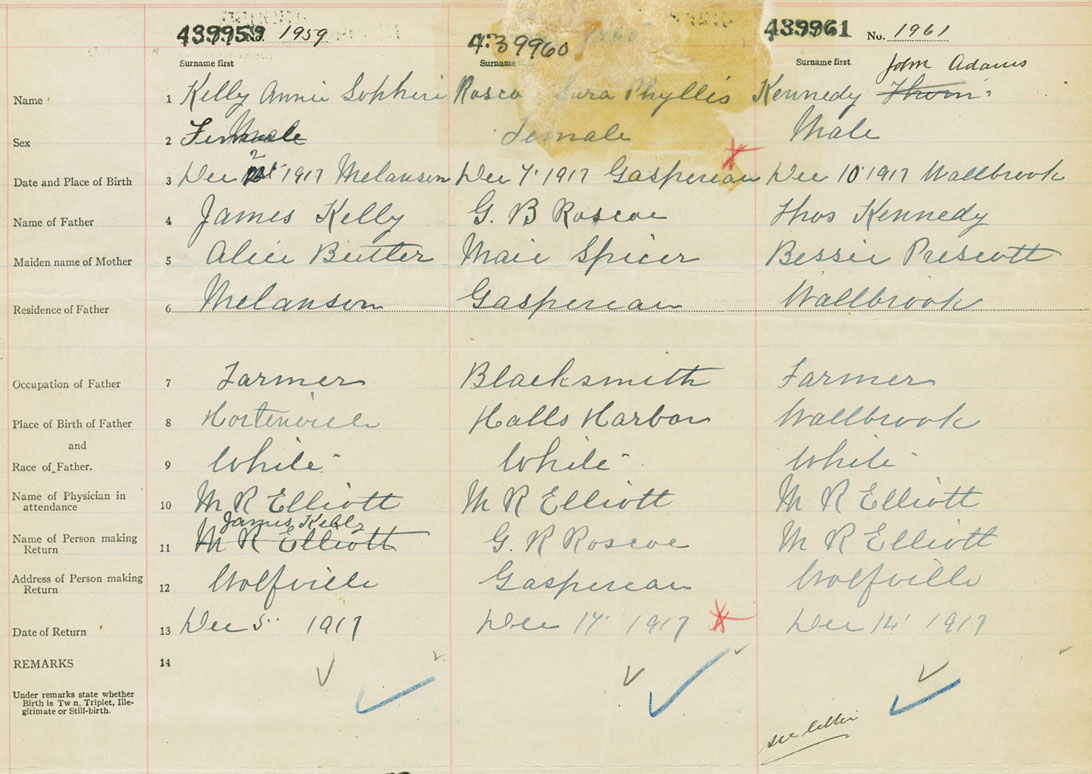 439959 No. 1959 439960 439961 No. 1961
Surname first Surname Surname first John Adams
Name 1 Kelly Annie Sophiri Rosco Sara Phyllis Kennedy Thom
Sex 2 Female Female Male
Date and Place of Birth 3 Dec 2 1917 Melanson Dec 7 1917 Gaspereau Dec 10 1917 Wallbrook
Name of Father 4 James Kelly G. B Roscoe Thos Kennedy
Maiden name of Mother 5 Alice Butler Maie Spicer Bessie Prescott
Residence of Father 6 Melanson Gaspereau Wallbrook
Occupation of Father 7 Farmer Blacksmith Farmer
Place of Birth of Father 8 Hortonville Halls Harbor Wallbrook
and
Race of Father. 9 White White White
Name of Physician in
attendance 10 M R Elliott M R Elliott M R Elliott
James Kelly
Name of Person making
Return 11 M R Elliott G. R Roscoe M R Elliott
Address of Person making
Return 12 Wolfville Gaspereau Wolfville
Date of Return 13 Dec 5 1917 Dec 17 1917 Dec 14 1917
REMARKS 14
Under remarks state whether
Birth is Twn, Triplet, Ille-
gitimate or Still-birth.
see letter